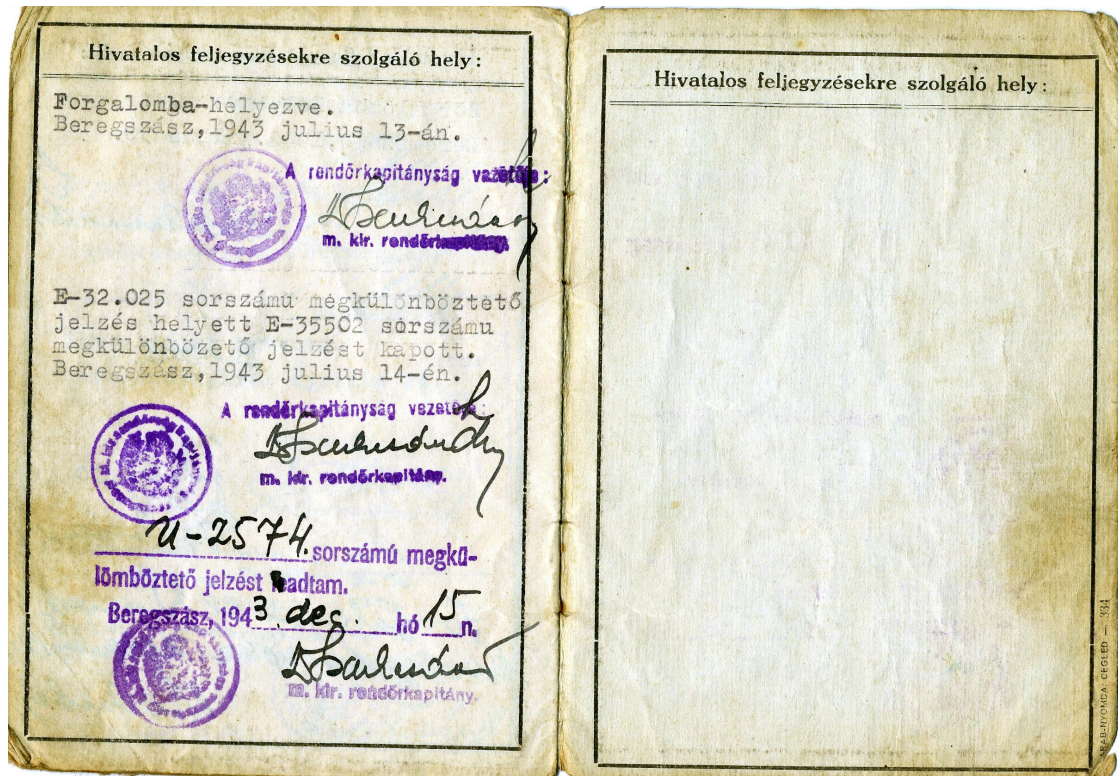 Hivatalos feljegyzésekre szolgáló hely:
Forgalomba-helyezve.
Beregszász,1943 julius 13-án.
A rendőrkapitányság vezetője:
m. kir. rendőrkapitány.
E-32.025 sorszámu megkülönböztető
jelzés helyett E-35502 sorszámu
megkülönbözető jelzést kapott.
Beregszász,1943 julius 14-én.
A rendőrkapitányság vezetője:
m. kir. rendőrkapitány.
U-2574. sorszámú megkü-
lömböztető jelzést adtam.
Beregszász, 1943. dec. hó 15 n.
m. kir. rendőrkapitány.
Hivatalos feljegyzésekre szolgáló hely:
NYOMDA, CEGLÉD — 334